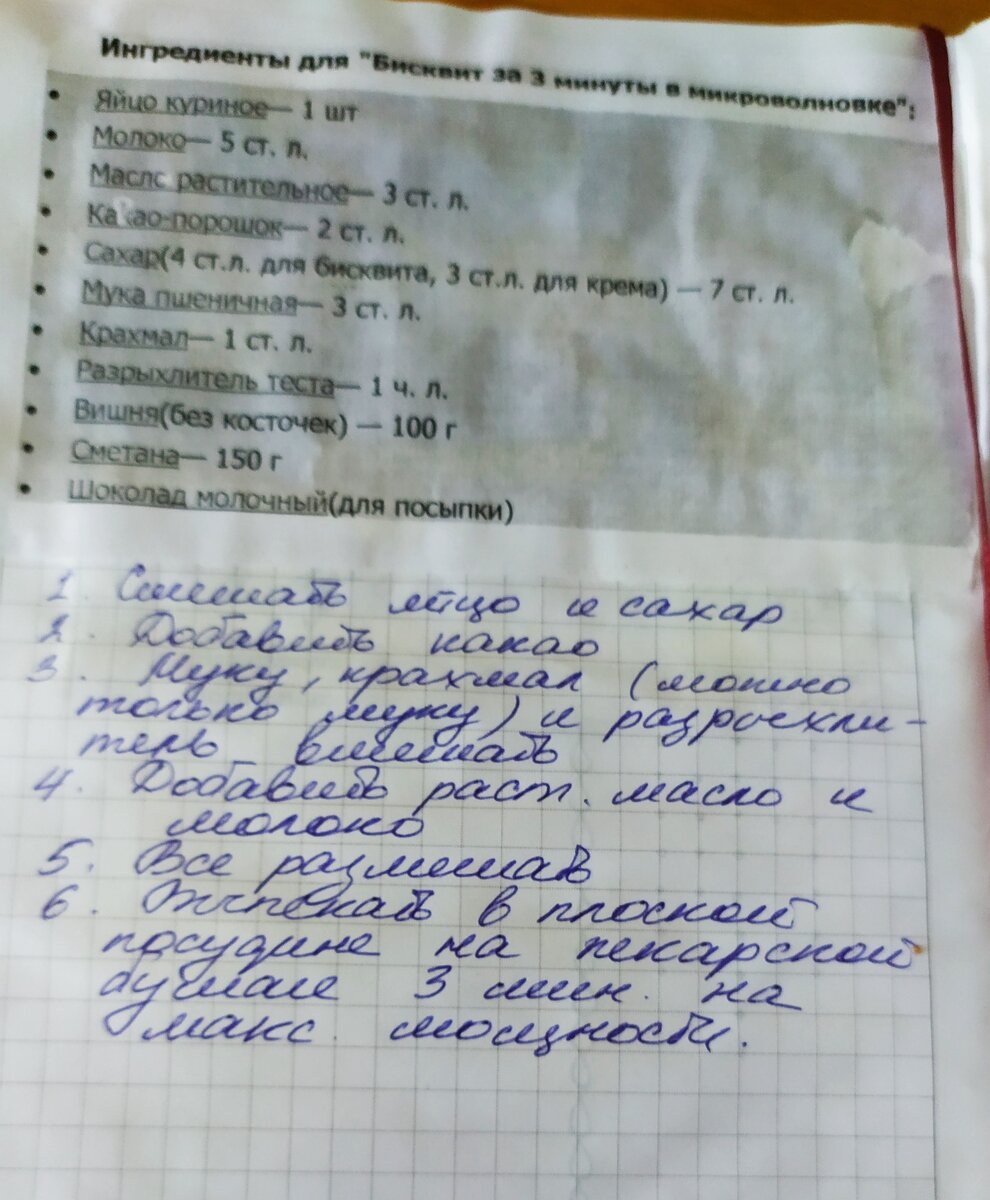 Ингредиенты для "Бисквит за 3 минуты в микроволновке":
• Яйцо куриное— 1 шт
• Молоко— 5 ст. л.
• Масло растительное— 3 ст. л.
• Какао-порошок— 2 ст. л.
• Сахар(4 ст.л. для бисквита, 3 ст.л. для крема) — 7 ст. л.
• Мука пшеничная— 3 ст. л.
• Крахмал— 1 ст. л.
• Разрыхлитель теста— 1 ч. л.
• Вишня(без косточек) — 100 г
• Сметана— 150 г
• Шоколад молочный(для посыпки)
1. Смешать яйцо и сахар
2. Добавить какао
3. Муку, крахмал (можно
только муку) и разрыхли-
тель вмешать
4. Добавить раст. масло и
молоко
5. Все размешать
6. Выпекать в плоской
посудине на пекарской
бумаге 3 мин. на
макс. мощности.